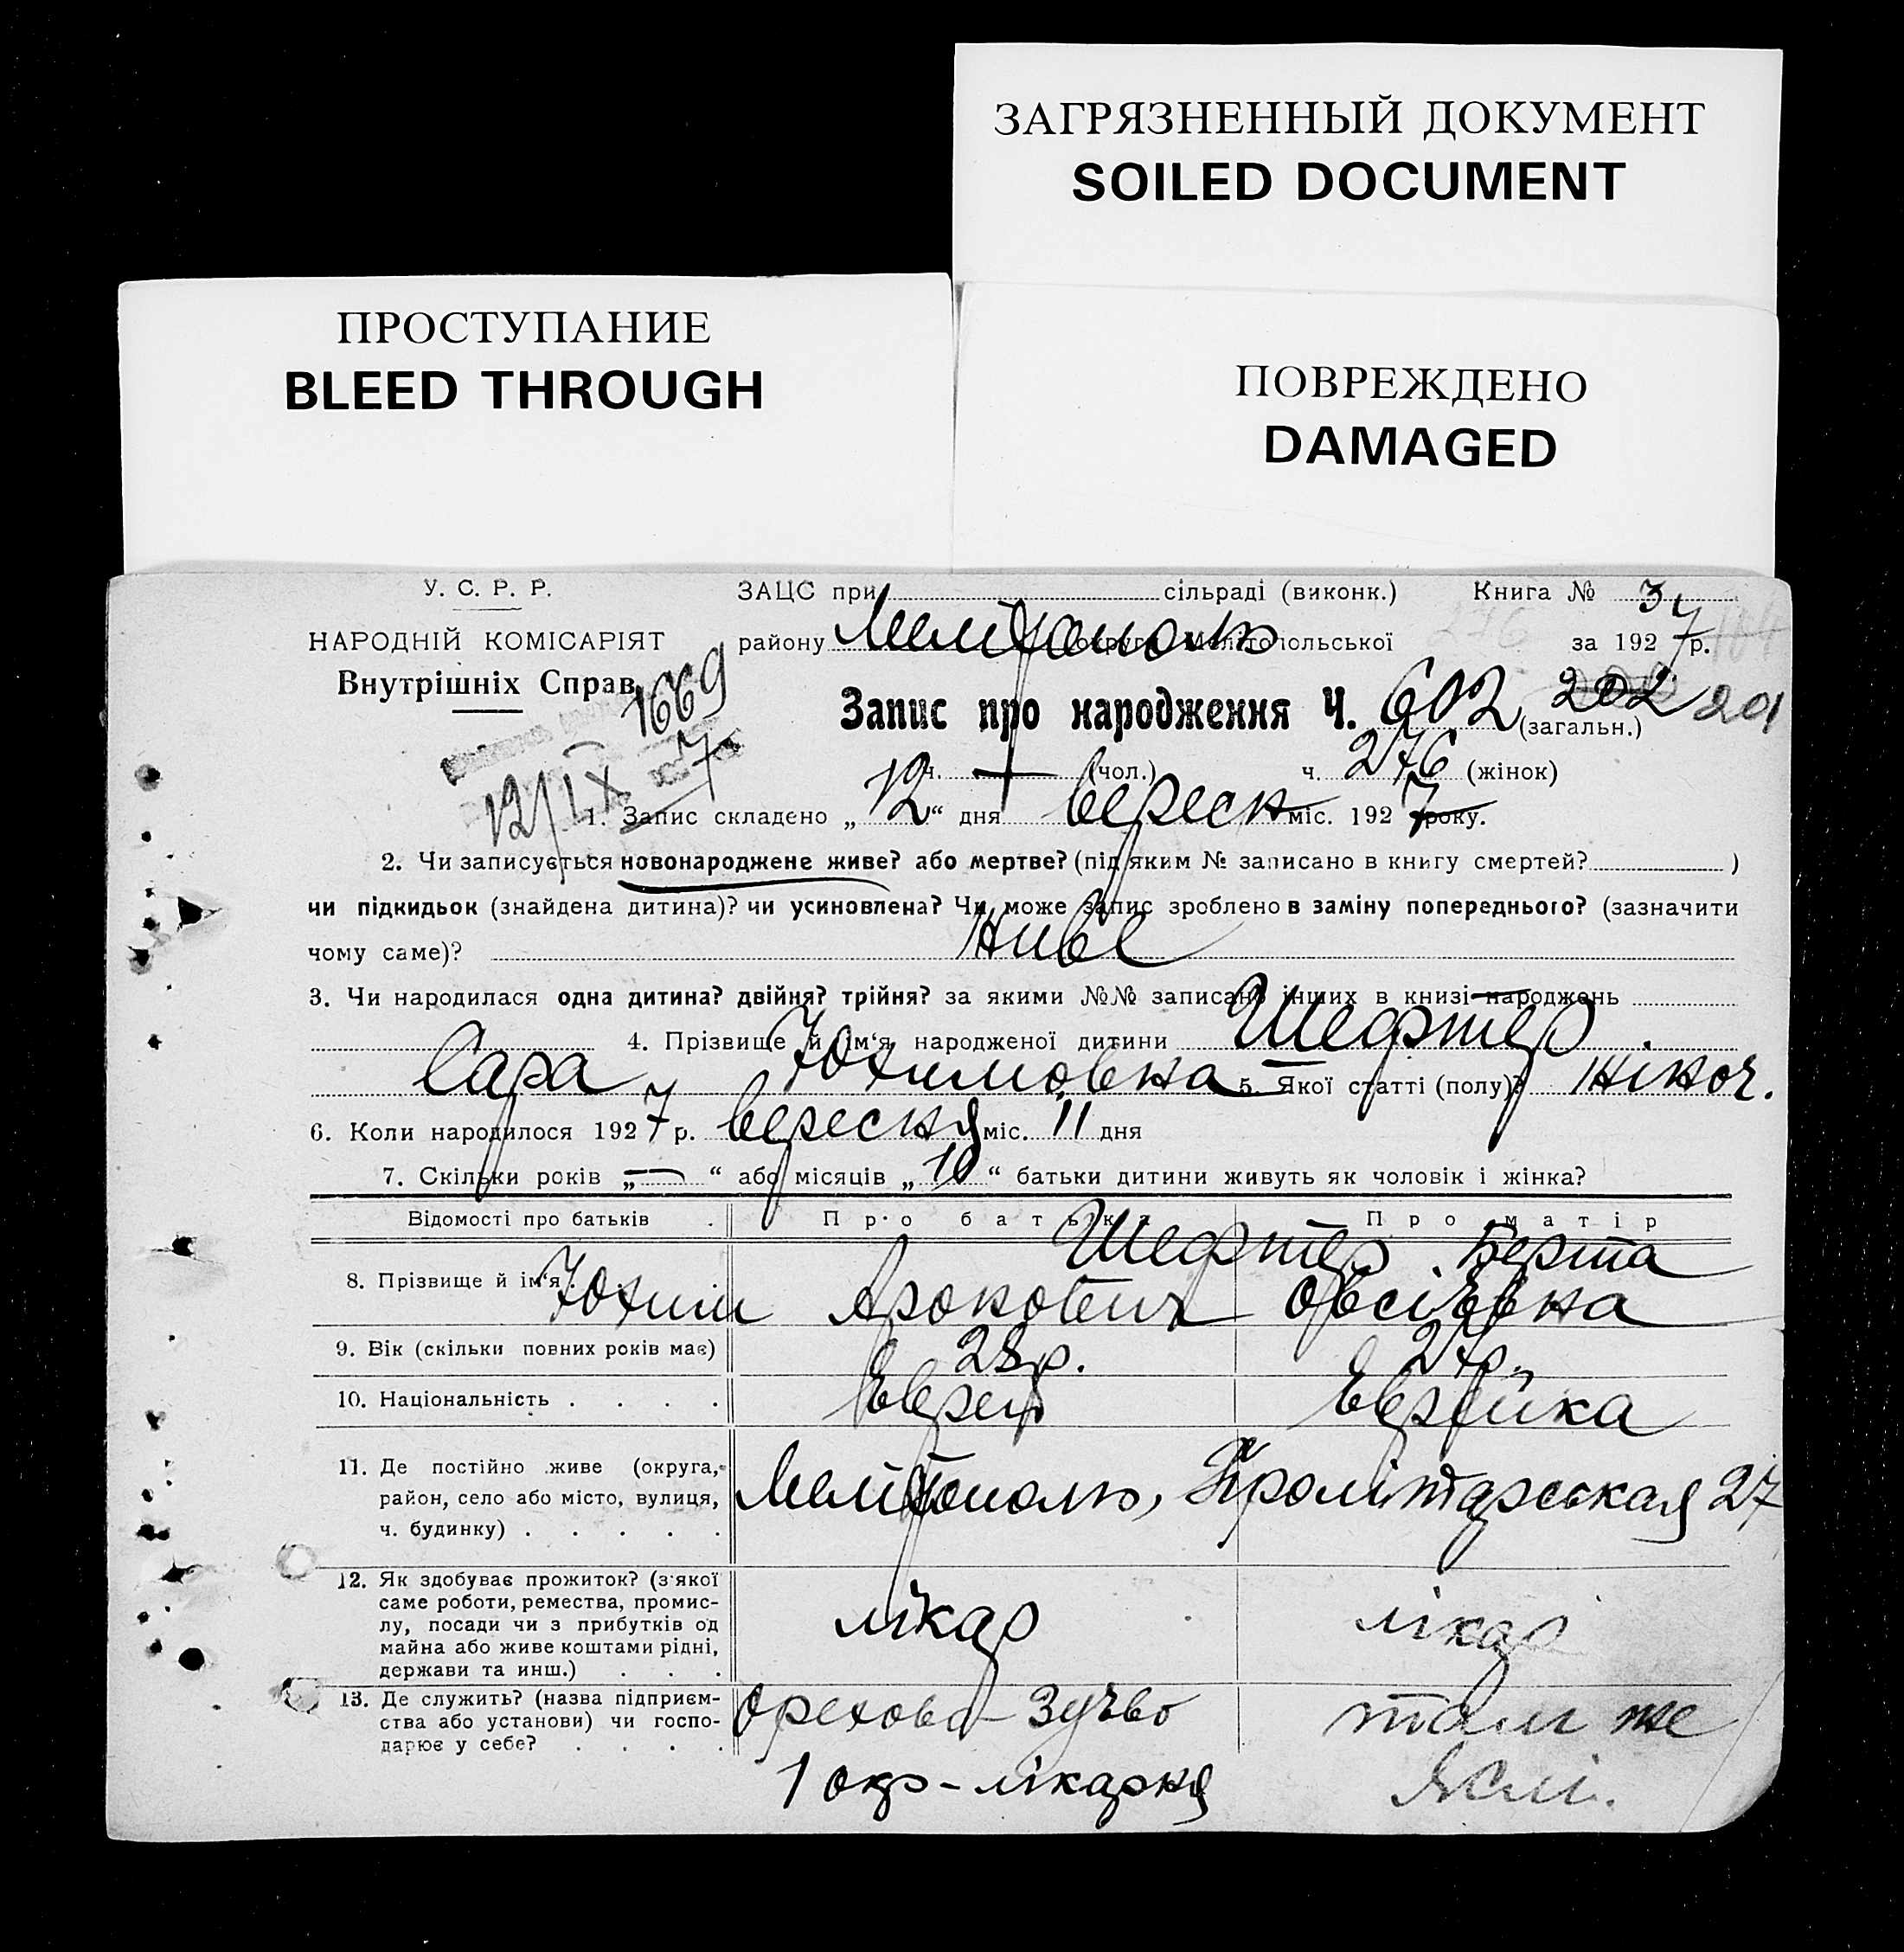 ЗАГРЯЗНЕННЫЙ ДОКУМЕНТ
SOILED DOCUMENT
ПРОСТУПАНИЕ
BLEED THROUGH
ПОВРЕЖДЕНО
DAMAGED
У. С. Р. Р.
НАРОДНІЙ КОМІСАРІЯТ
Внутрішніх Справ
1669
12/IX 7
ЗАЦС при сільраді (виконк.) Книга № 3
району Мелітополь округи Мелітопольської 276 за 1927 р.
Запис про народження Ч. 602 (загальн.) 202 201
ч. — (чол.) ч. 276 (жінок)
1. Запис складено „12“ дня вересн міс. 1927 року.
2. Чи записується новонароджене живе? або мертве? (під яким № записано в книгу смертей? )
чи підкидьок (знайдена дитина)? чи усиновлена? Чи може запис зроблено в заміну попереднього? (зазначити
чому саме)? Живе
3. Чи народилася одна дитина? двійня? трійня? за якими №№ записано інших в книзі народжень
4. Прізвище й ім‘я народженої дитини Шефтер
Сара Юхимовна 5. Якої статті (полу)? жіноч.
6. Коли народилося 1927 р. вересня міс. 11 дня
7. Скільки років „—“ або місяців „10“ батьки дитини живуть як чоловік і жінка?
Відомості про батьків Про батька Про матір
8. Прізвище й ім‘я Шефтер Берта
Юхим Аронович Овсіевна
9. Вік (скільки повних років має) 28р. 27р.
10. Національність Еврей Еврейка
11. Де постійно живе (округа,
район, село або місто, вулиця, Мелітополь, Пролітарская 27
ч. будинку)
12. Як здобуває прожиток? (з якої
саме роботи, ремества, промис-
лу, посади чи з прибутків од лікар лікар
майна або живе коштами рідні,
держави та инш.)
13. Де служить? (назва підприєм-
ства або установи) чи госпо- Орехово-Зуєво там же
дарює у себе?
1 окр-лікарня Яслі.